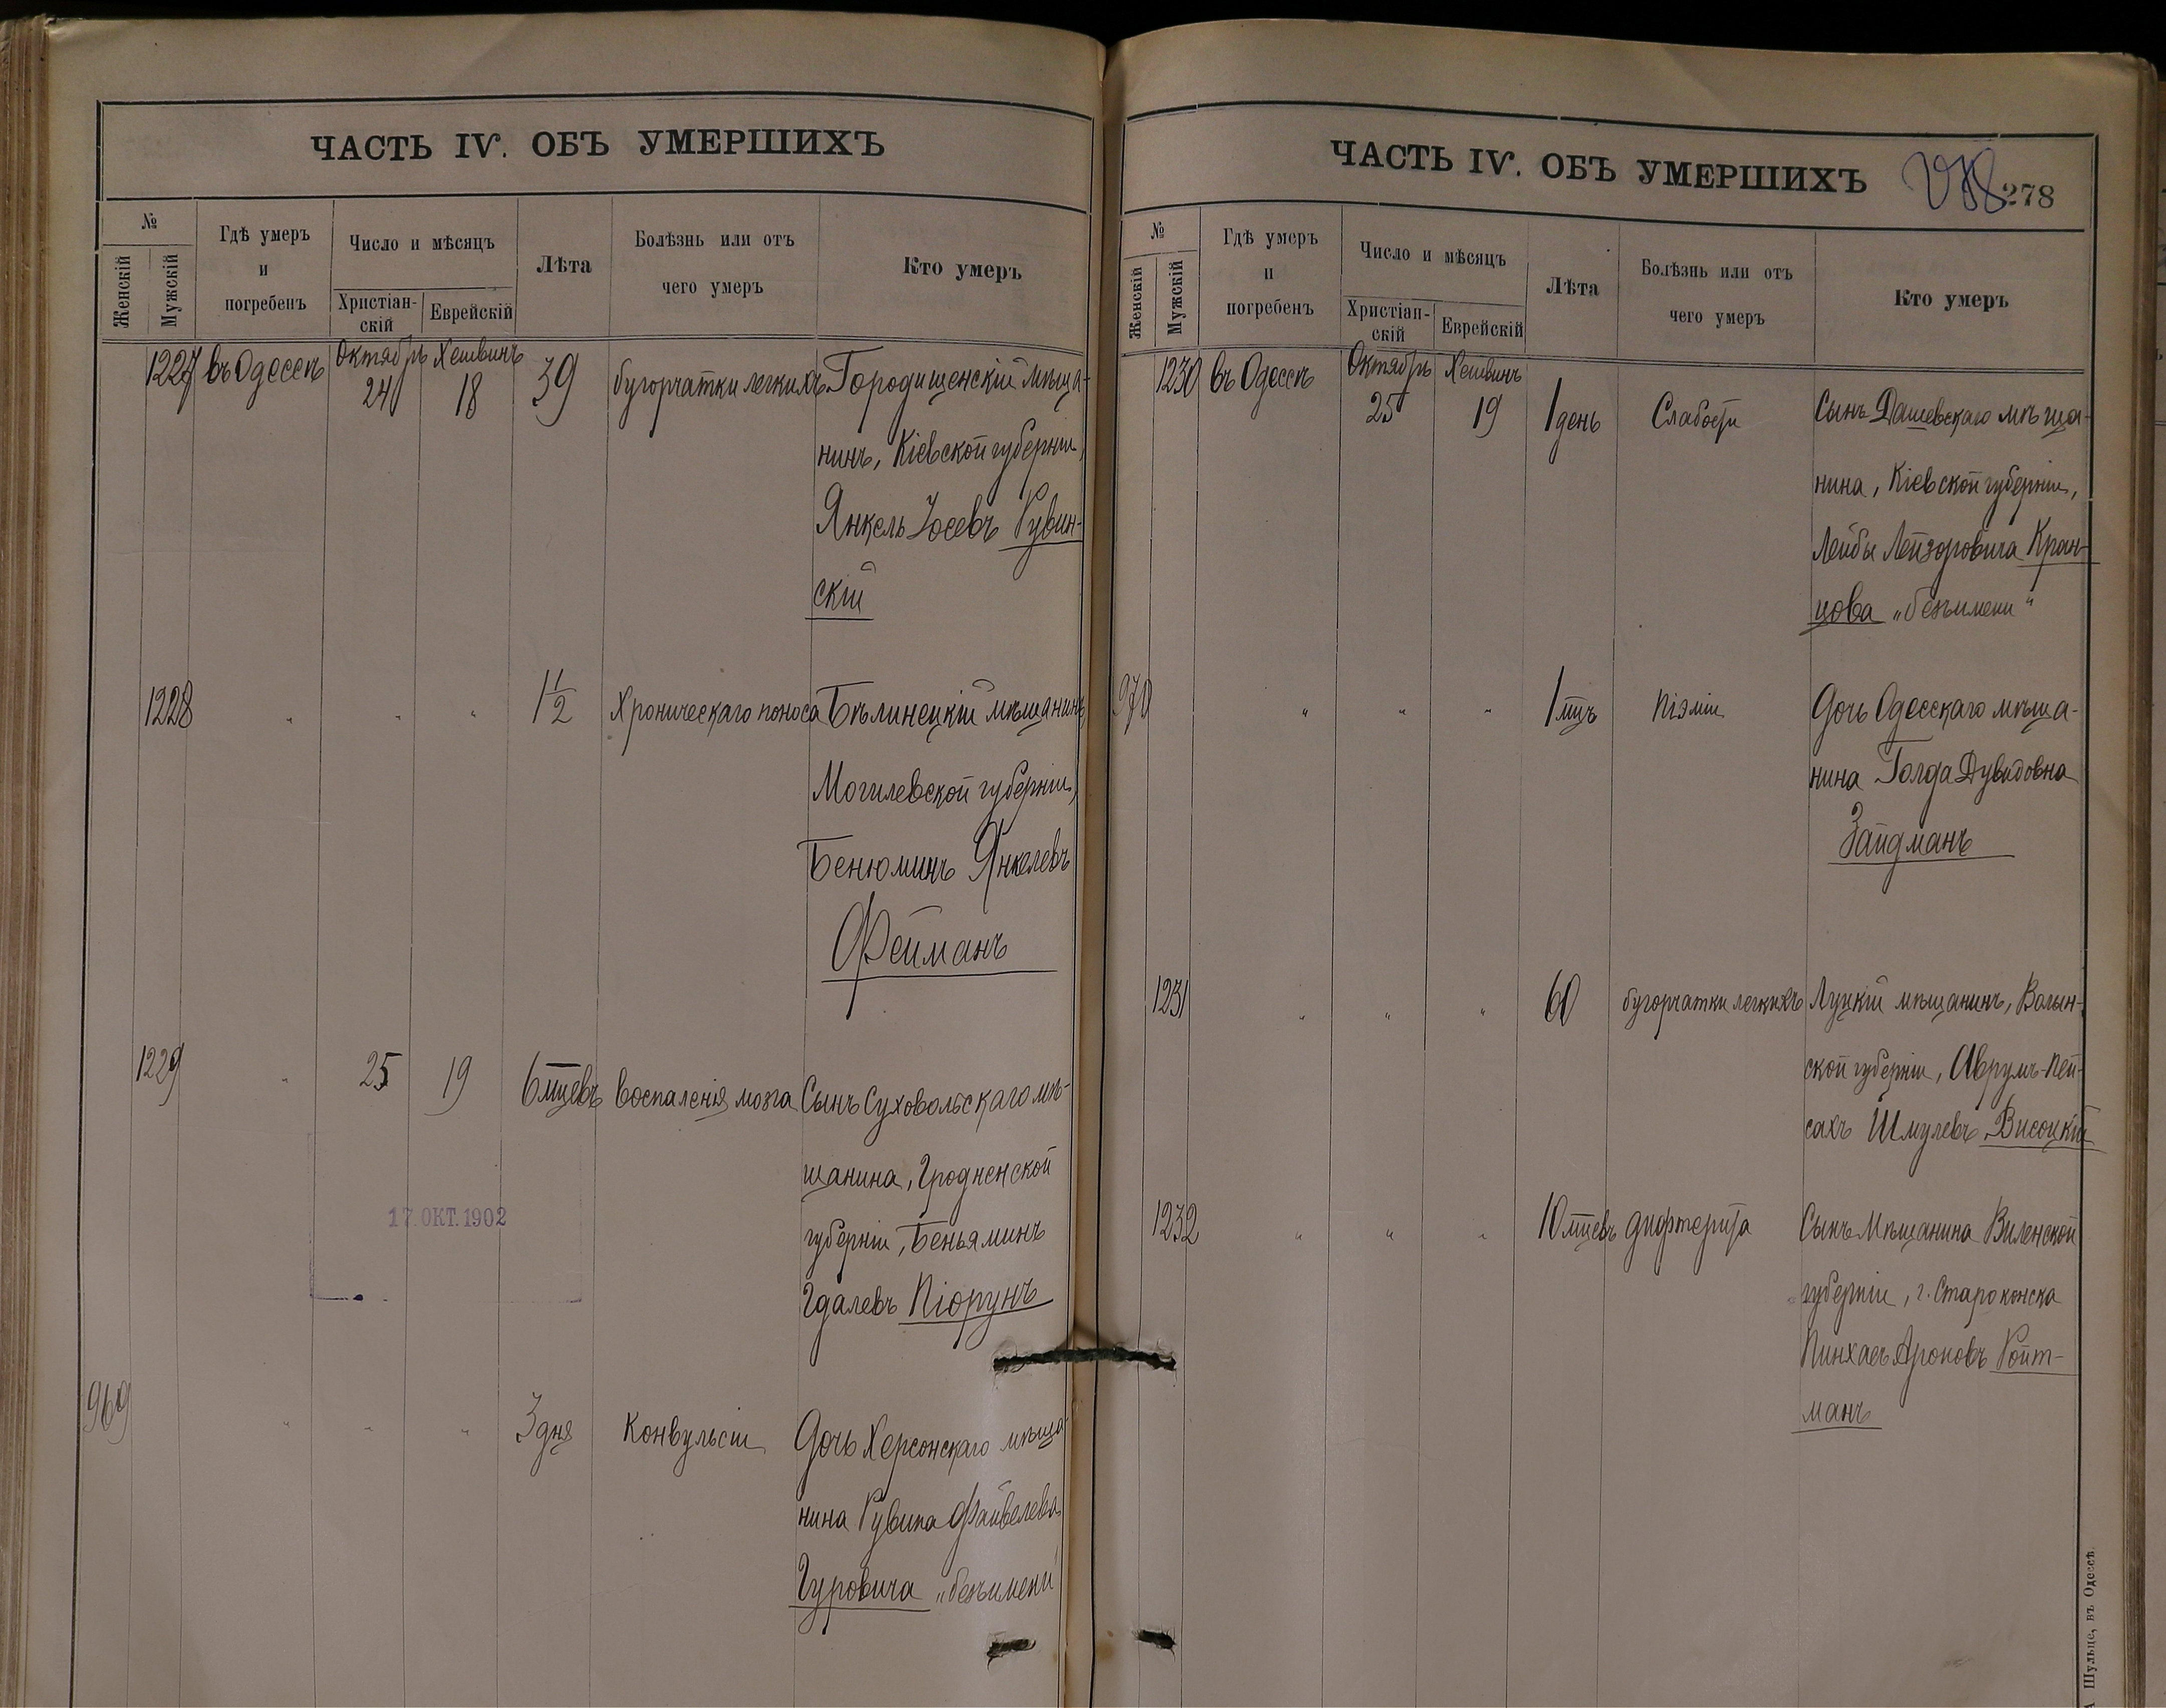 ЧАСТЬ IV. ОБЪ УМЕРШИХЪ
№
Женскій
Мужскій
Гдѣ умеръ
и
погребенъ
Число и мѣсяцъ
Христіан-
скій
Еврейскій
Лѣта
Болѣзнь или отъ
чего умеръ
Кто умеръ
1227 въ Одессѣ Октябрь 24 Хешвинъ 18 39 бугорчатки легкихъ Городищенскій мѣща-
нинъ, Кіевской губерніи,
Янкель Іосевъ Рувин-
скій
1228 " " " 1 1/2 Хроническаго поноса Бѣлинецкій мѣщанинъ
Могилевской губерніи,
Бенюминъ Янкелевъ
Фейманъ
1229 " 25 19 6 мцевъ Воспаленія мозга Сынъ Суховольскаго мѣ-
щанина, Гродненской
губерніи, Беньяминъ
Гдалевъ Піорунъ
17.ОКТ.1902
969 " " " 3 дня Конвульсіи Дочь Херсонскаго мѣща-
нина Рувина Файвелева
Гуровича „безъимени"
ЧАСТЬ IV. ОБЪ УМЕРШИХЪ
278
№
Женскій
Мужскій
Гдѣ умеръ
и
погребенъ
Число и мѣсяцъ
Христіан-
скій
Еврейскій
Лѣта
Болѣзнь или отъ
чего умеръ
Кто умеръ
1230 въ Одессѣ Октябрь 25 Хешвинъ 19 1 день Слабости Сынъ Дашевскаго мѣща-
нина, Кіевской губерніи,
Лейбы Лейзоровича Кран-
цова „безъимени"
970 " " " 1 мцъ Піэміи Дочь Одесскаго мѣща-
нина Голда Дувидовна
Зайдманъ
1231 " " " 60 бугорчатки легкихъ Луцкій мѣщанинъ, Волын-
ской губерніи, Аврумъ-Пей-
сахъ Шмулевъ Висоцкій
1232 " " " 10 мцевъ дифтерита Сынъ Мѣщанина Виленской
губерніи, г. Староконска
Пинхасъ Ароновъ Ройт-
манъ
Шульце, въ Одессѣ.